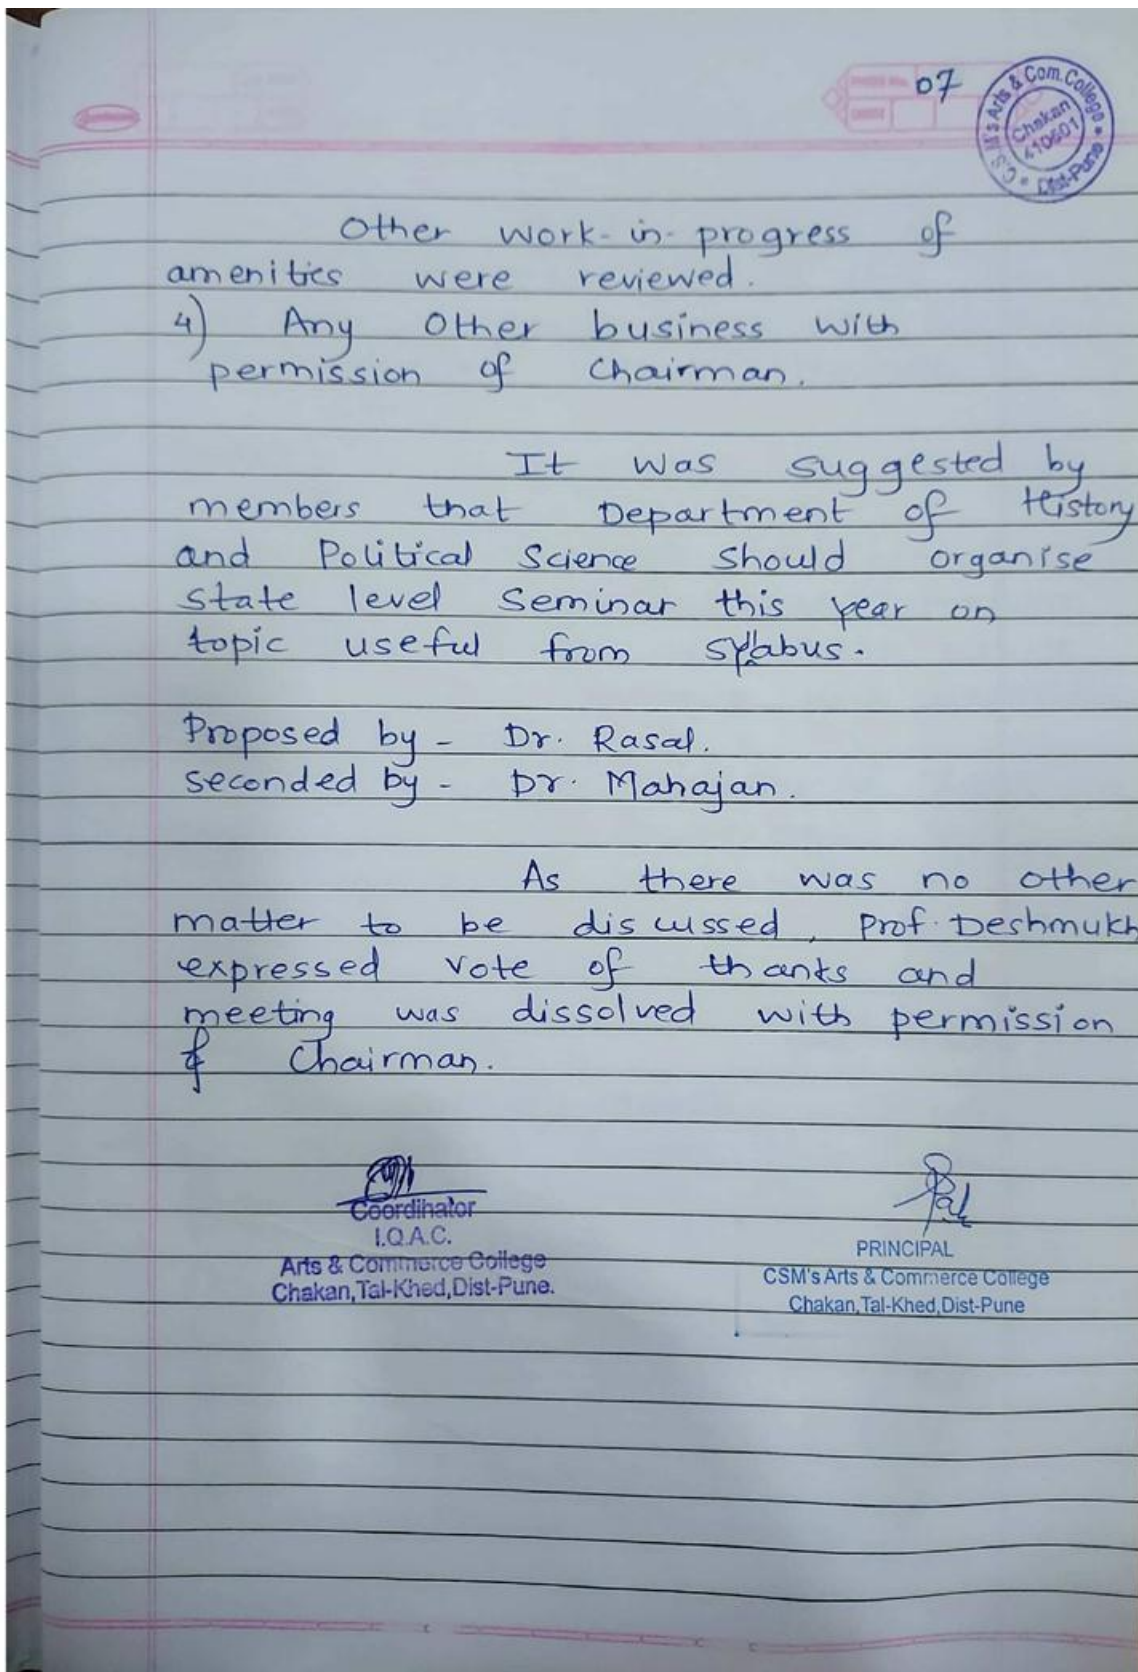 07
C.S.M's Arts & Com. College
Chakan
410501
Dist-Pune
Other work-in-progress of
amenities were reviewed.
4) Any Other business with
permission of Chairman.
It was suggested by
members that Department of History
and Political Science should organise
state level seminar this year on
topic useful from syllabus.
Proposed by - Dr. Rasal.
seconded by - Dr. Mahajan.
As there was no other
matter to be discussed, Prof. Deshmukh
expressed vote of thanks and
meeting was dissolved with permission
of Chairman.
Coordinator
I.Q.A.C.
Arts & Commerce College
Chakan,Tal-Khed,Dist-Pune.
PRINCIPAL
CSM's Arts & Commerce College
Chakan,Tal-Khed,Dist-Pune